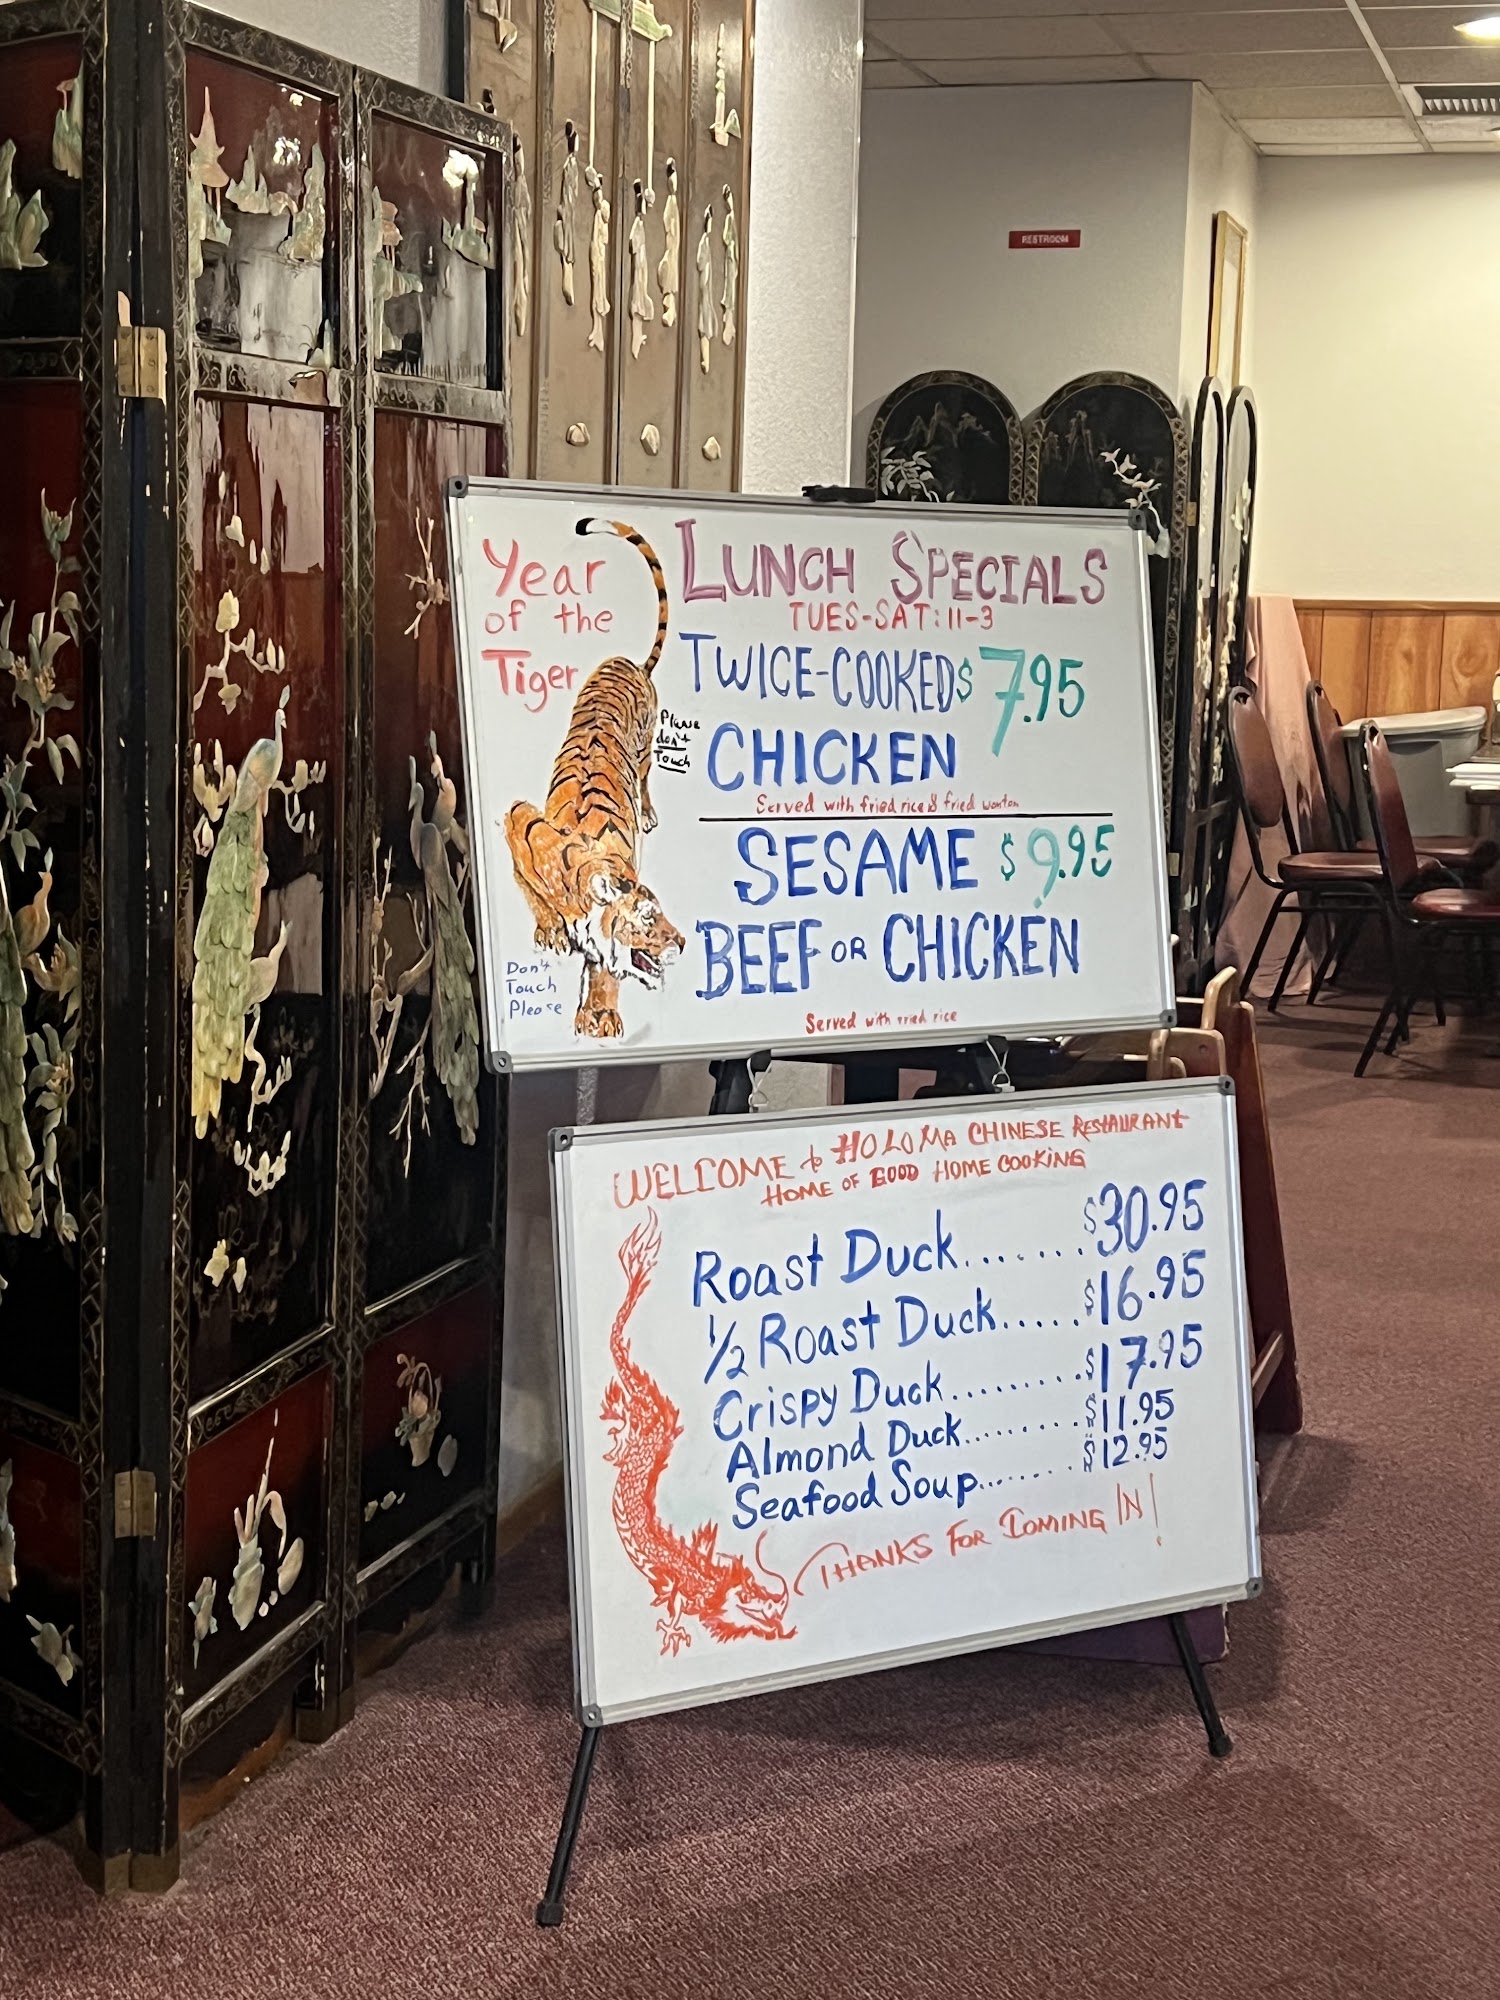 RESTROOM
Year
of the
Tiger
Please
don't
Touch
Don't
Touch
Please
LUNCH SPECIALS
TUES-SAT: 11-3
TWICE-COOKED $7.95
CHICKEN
Served with fried rice & fried wonton
SESAME $9.95
BEEF OR CHICKEN
Served with fried rice
WELCOME to HOLOMA CHINESE RESTAURANT
HOME OF GOOD HOME COOKING
Roast Duck....... $30.95
1/2 Roast Duck..... $16.95
Crispy Duck......... $17.95
Almond Duck........ $11.95
Seafood Soup....... $12.95
THANKS FOR COMING IN!